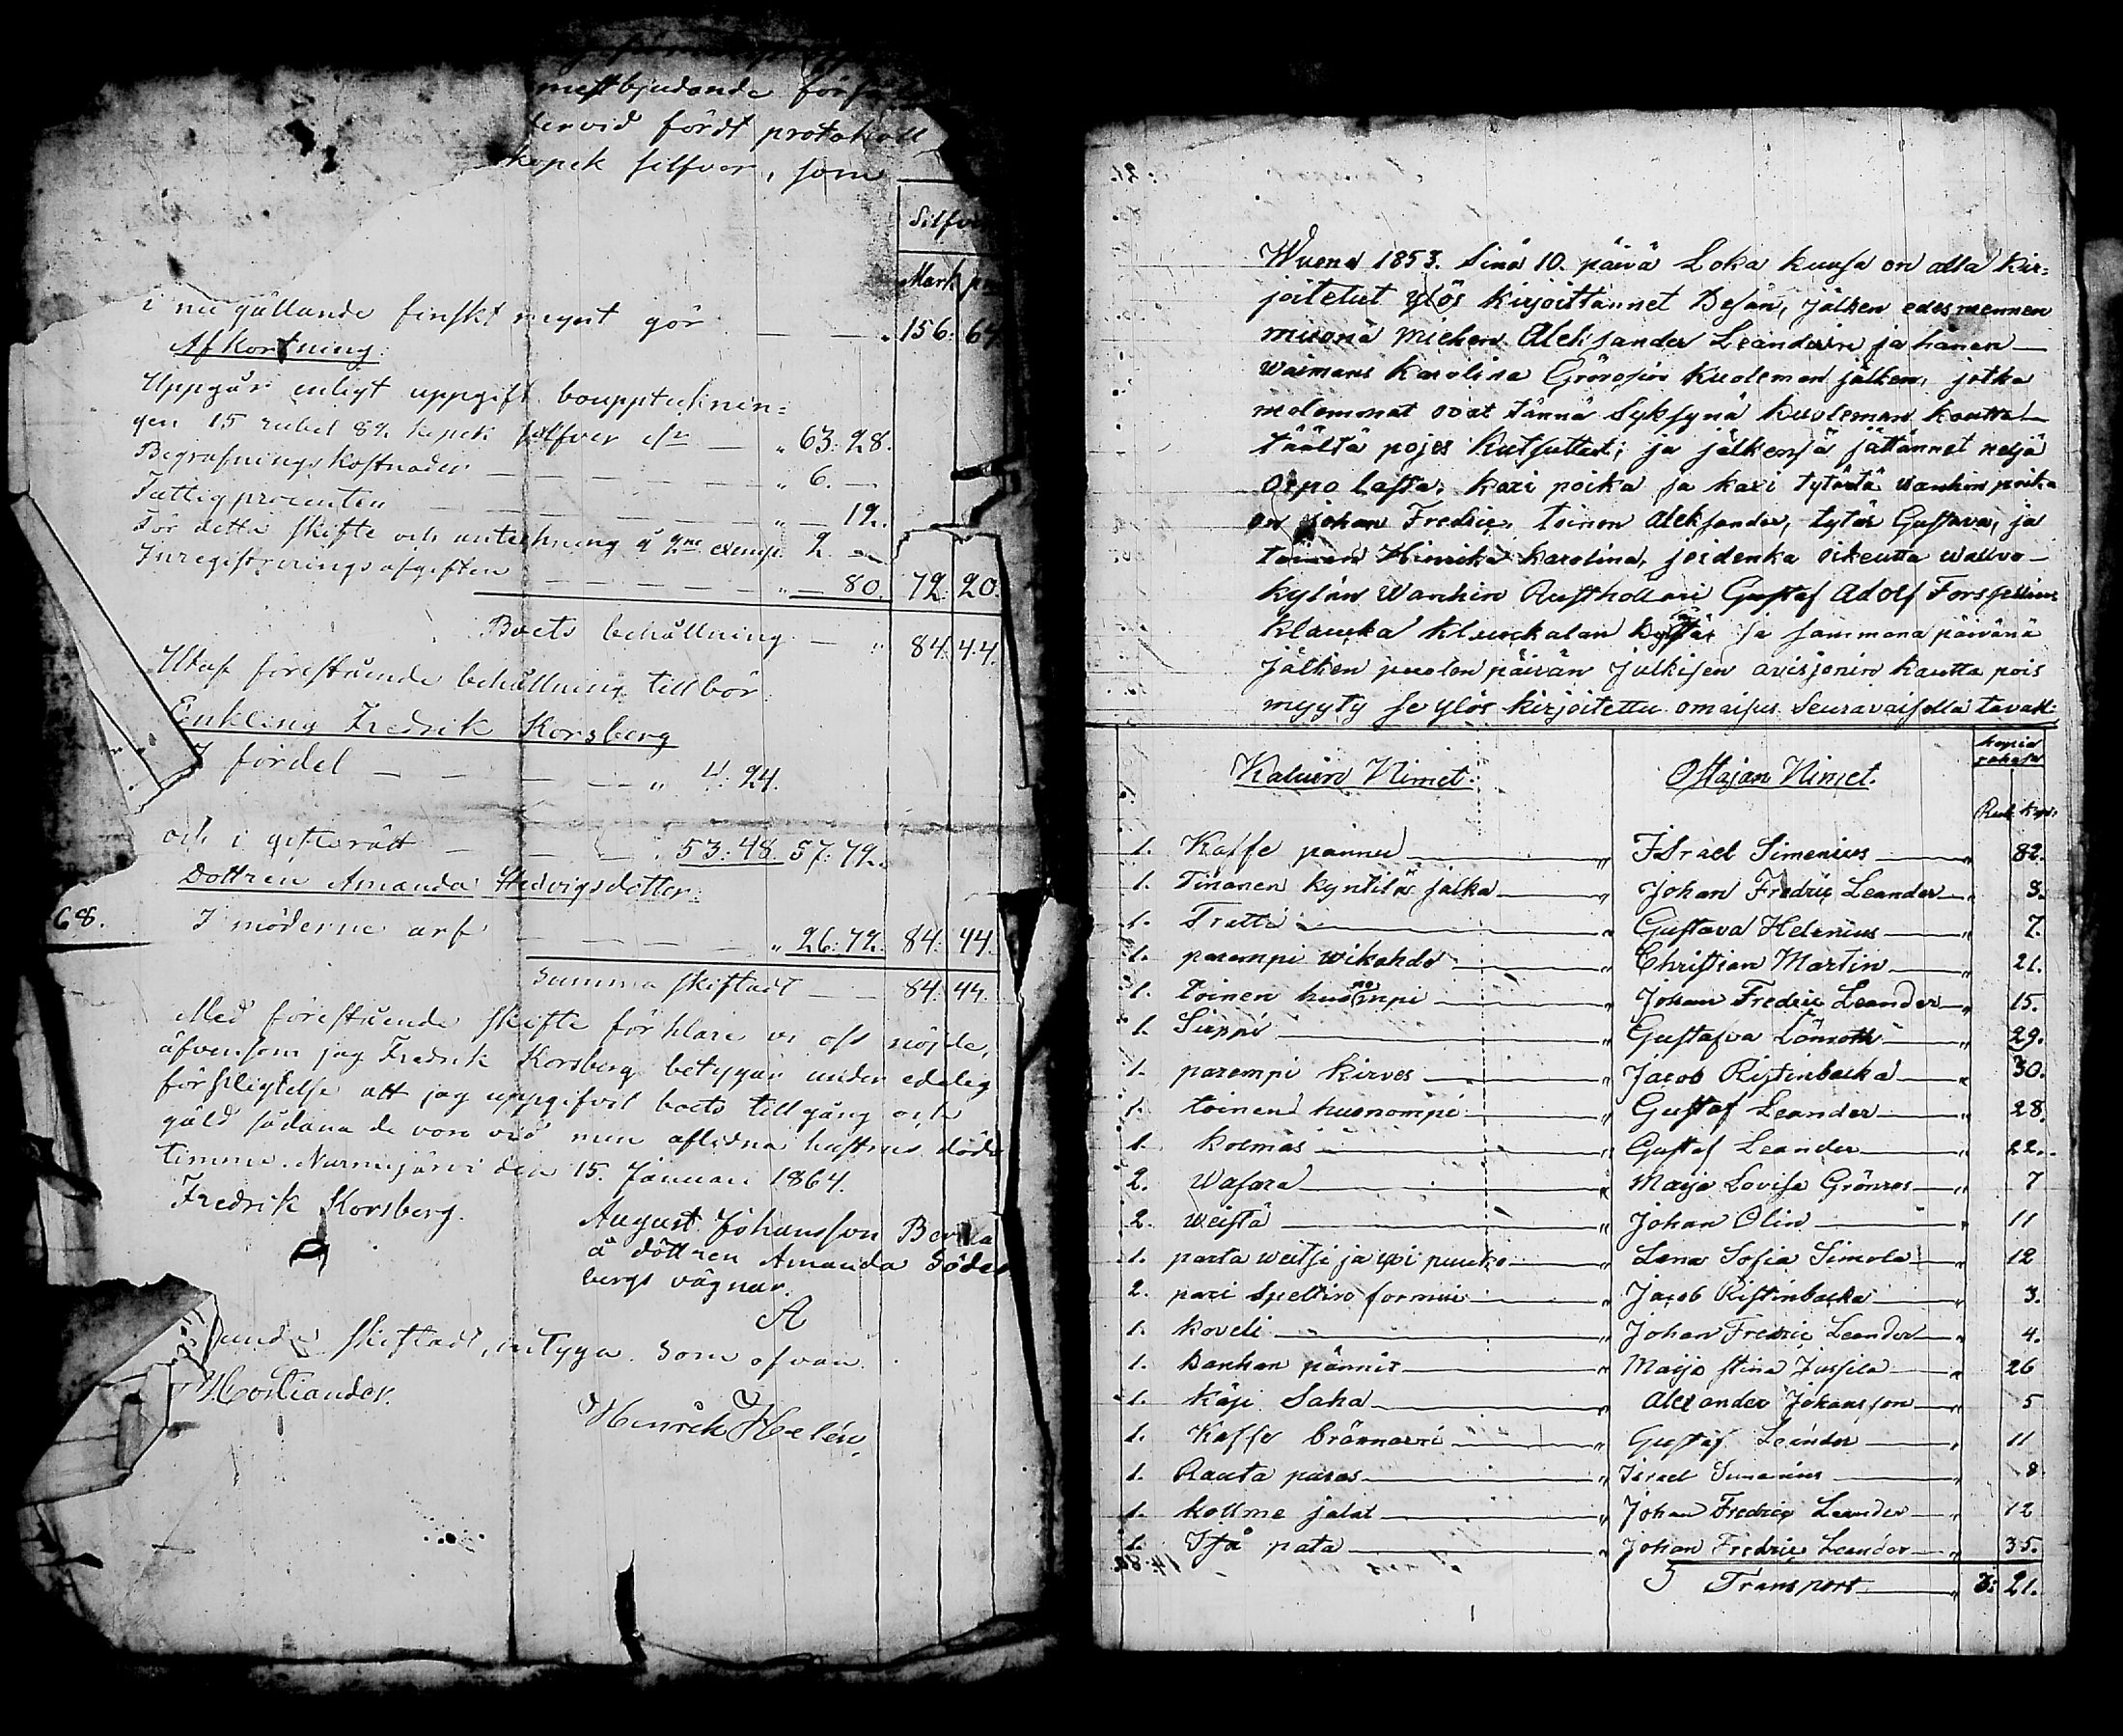 mestbjudande
dervid fördt protokoll
kopek silfver, som
Silfver
Mark
i nu gällande finskt mynt gör — — „ 156: 64
Afkortning:
Uppgår enligt uppgift bouppteknin=
gen 15 rubel 82 kopek silfver eln — „ 63: 28.
Begrafnings kostnader — — — — „ 6. —
Fattigprocenten — — — — „ — 12.
För detta skifte och anteckning i 2ne exemp. 2. —
Inregistreringsafgiften — — — „ — 80. 72: 20.
Boets behållning — „ 84: 44.
Utaf förestående behållning tillbör:
Enkling Fredrik Korsberg
I fördel — — — — „ 4: 24.
och i giftorätt — — — „ 53: 48. 57: 72.
Dottren Amanda Hedvigsdotter:
68.
I möderne arf — — — — „ 26: 72. 84: 44.
Summa skiftadt — — 84: 44.
Med förestående skifte förklara vi oss nöjde,
äfvensom jag Fredrik Korsberg betygar under edelig
förpligtelse att jag uppgifvit boets tillgång och
gäld sådana de voro vid min aflidna hustrus döds
timme. Nurmijärvi den 15. Januari 1864.
Fredrik Korsberg.
August Johansson
å dottren Amanda Söder
bergs vägnar.
A
skiftadt, intyga. Som ofvan.
Hortiander.
Hinrik Helén.
Wuena 1853. Sinä 10. päivä Loka kuusa on alla kir=
joitetut ylös kirjoittannet Desän, jälken edesmennen
muonä miehen Aleksander Leanderin ja hänen
waimans Karolina Grönroosin kuoleman jälken, jotka
molemmat ovat tännä Syksynä kuoleman kautta
täältä pojes Kutsuttut; ja jälkensä jättännet neljä
Orpo lasta, kaxi poika ja kaxi tytärtä wanhin poika
on Johan Fredric, toinen Aleksander, tytär Gustava, ja
toinen Hinrika Karolina, joidenka oikeutta wallvo
kylän Wanhin Rusthollari Gustaf Adolf Forssellius
Klauka Klauckalan kylästä ja sammana päivänä
Jälken puolen päivän Julkisen avisjonin kautta pois
myyty se ylös kirjoitettu omaisus Seuravaisella tavall:
Kaluin Nimet. Ostajan Nimet. hopia rahasa
Rub. Kop.
1. Kaffe pannu — „ Israel Simenius — „ 82.
1. Tinanen kyntilä jalka — „ Johan Fredric Leander — „ 8.
1. Tratti — „ Gustava Helenius — „ 7.
1. parempi wikahde — „ Christian Martin — „ 21.
1. toinen huonompi — „ Johan Fredric Leander — „ 15.
1. Sirppi — „ Gustafva Lönroth — „ 29.
1. parempi kirves — „ Jacob Ristinbacka — „ 30.
1. toinen huonompi — „ Gustaf Leander — „ 28.
1. kolmas — „ Gustaf Leander — „ 22.
2. Wasara — „ Maija Lovisa Grönros — „ 7
2. weistä — „ Johan Olin — „ 11
1. parta weitsi ja yxi puuko — „ Lena Sofia Simola — „ 12
2. pari Speltin formui — „ Jacob Ristinbacka — „ 3.
1. Koveli — „ Johan Fredric Leander — „ 4.
1. Wanhan pännit — „ Maija Stina Jussila — „ 26
1. Käsi Saha — „ Alexander Johansson — „ 5
1. Kaffe brännari — „ Gustaf Leander — „ 11
1. Rauta paras — „ Israel Simenius — „ 8
1. kollme jalat — „ Johan Fredric Leander — „ 12
1. Iso pata — „ Johan Fredric Leander — „ 35.
Transport — „ 3: 21.